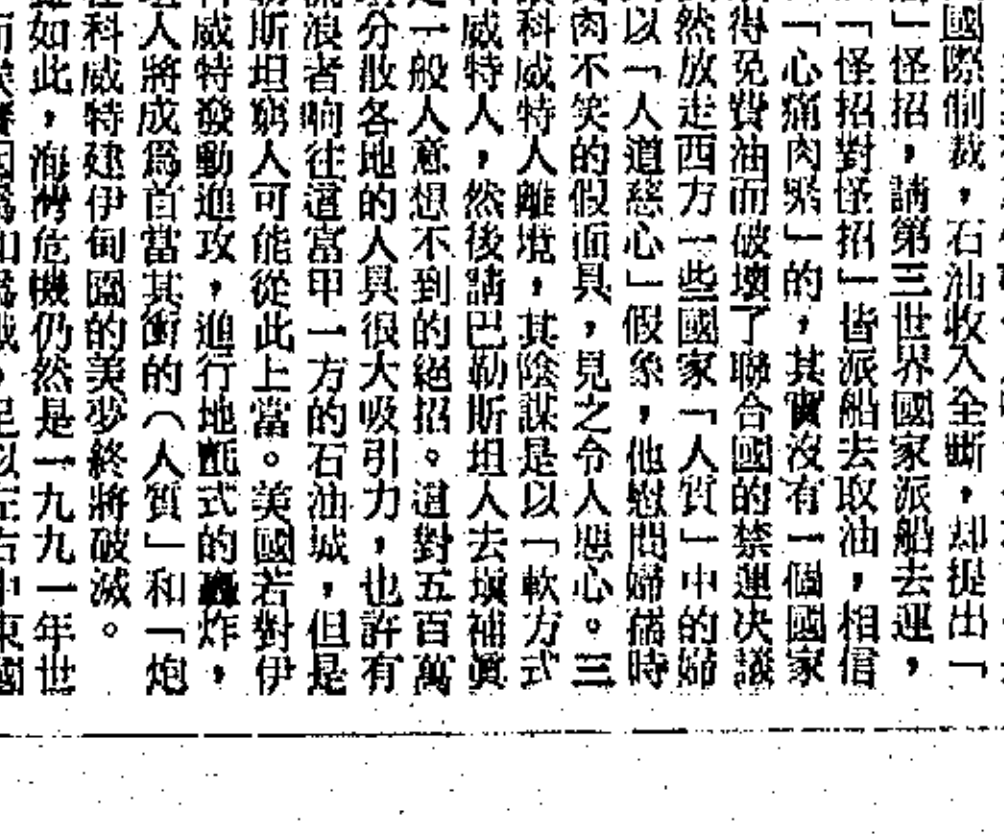 國際制裁，石油收入全斷，却提出「
」怪招，請第三世界國家派船去運，
「怪招對怪招」皆派船去取油，相信
「心痛肉緊」的，其實沒有一個國家
得免費油而破壞了聯合國的禁運決議
然放走西方一些國家「人質」中的婦
以「人道慈心」假象，他慰問婦孺時
肉不笑的假面具，見之令人惡心。三
科威特人離境，其陰謀是以「軟方式
威特人，然後請巴勒斯坦人去填補眞
一般人意想不到的絕招。這對五百萬
分散各地的人具很大吸引力，也許有
浪者响往這富甲一方的石油城，但是
斯坦窮人可能從此上當。美國若對伊
威特發動進攻，進行地氈式的轟炸，
人將成爲首當其衝的（人質」和「炮
科威特建伊甸園的美夢終將破滅。
如此，海灣危機仍然是一九九一年世